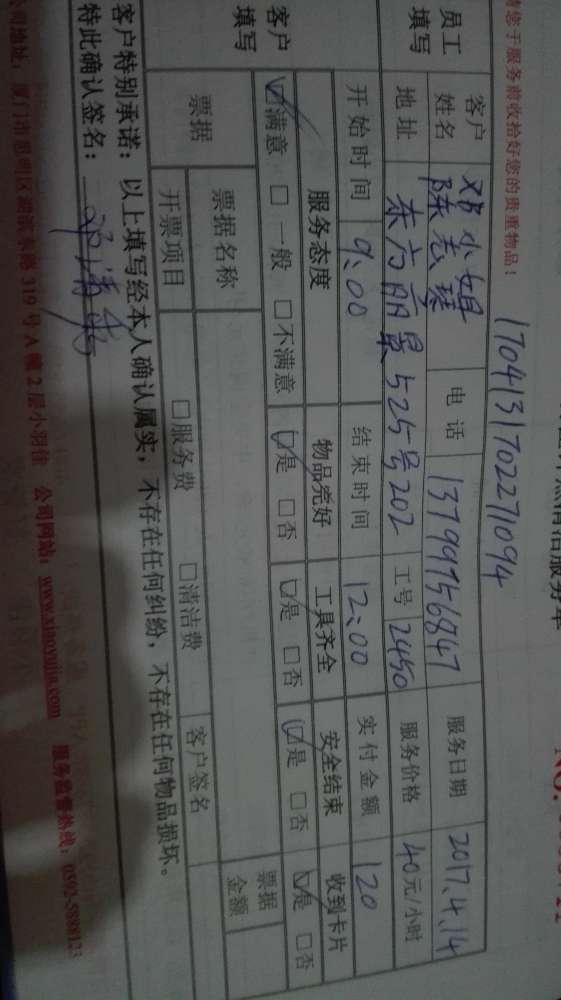 清洁服务单
NO.
1704131702271094
您于服务前收拾好您的贵重物品！
员工填写
客户姓名 邓小姐 陈志琪 电话 13799756847 服务日期 2017.4.14
地址 东方丽景525号202 工号 2450 服务价格 40元/小时
开始时间 9:00 结束时间 12:00 实付金额 120
客户填写
服务态度 物品完好 工具齐全 安全结束 收到卡片
☑满意 □一般 □不满意 ☑是 □否 ☑是 □否 ☑是 □否 ☑是 □否
票据 票据名称 票据金额
开票项目 □服务费 □清洁费 客户签名
客户特别承诺：以上填写经本人确认属实，不存在任何纠纷，不存在任何物品损坏。
特此确认签名：
公司地址：厦门市思明区湖滨东路319号A幢2层小羽佳 公司网站：www.xiaoyujia.com 服务监督热线：0592-5888123